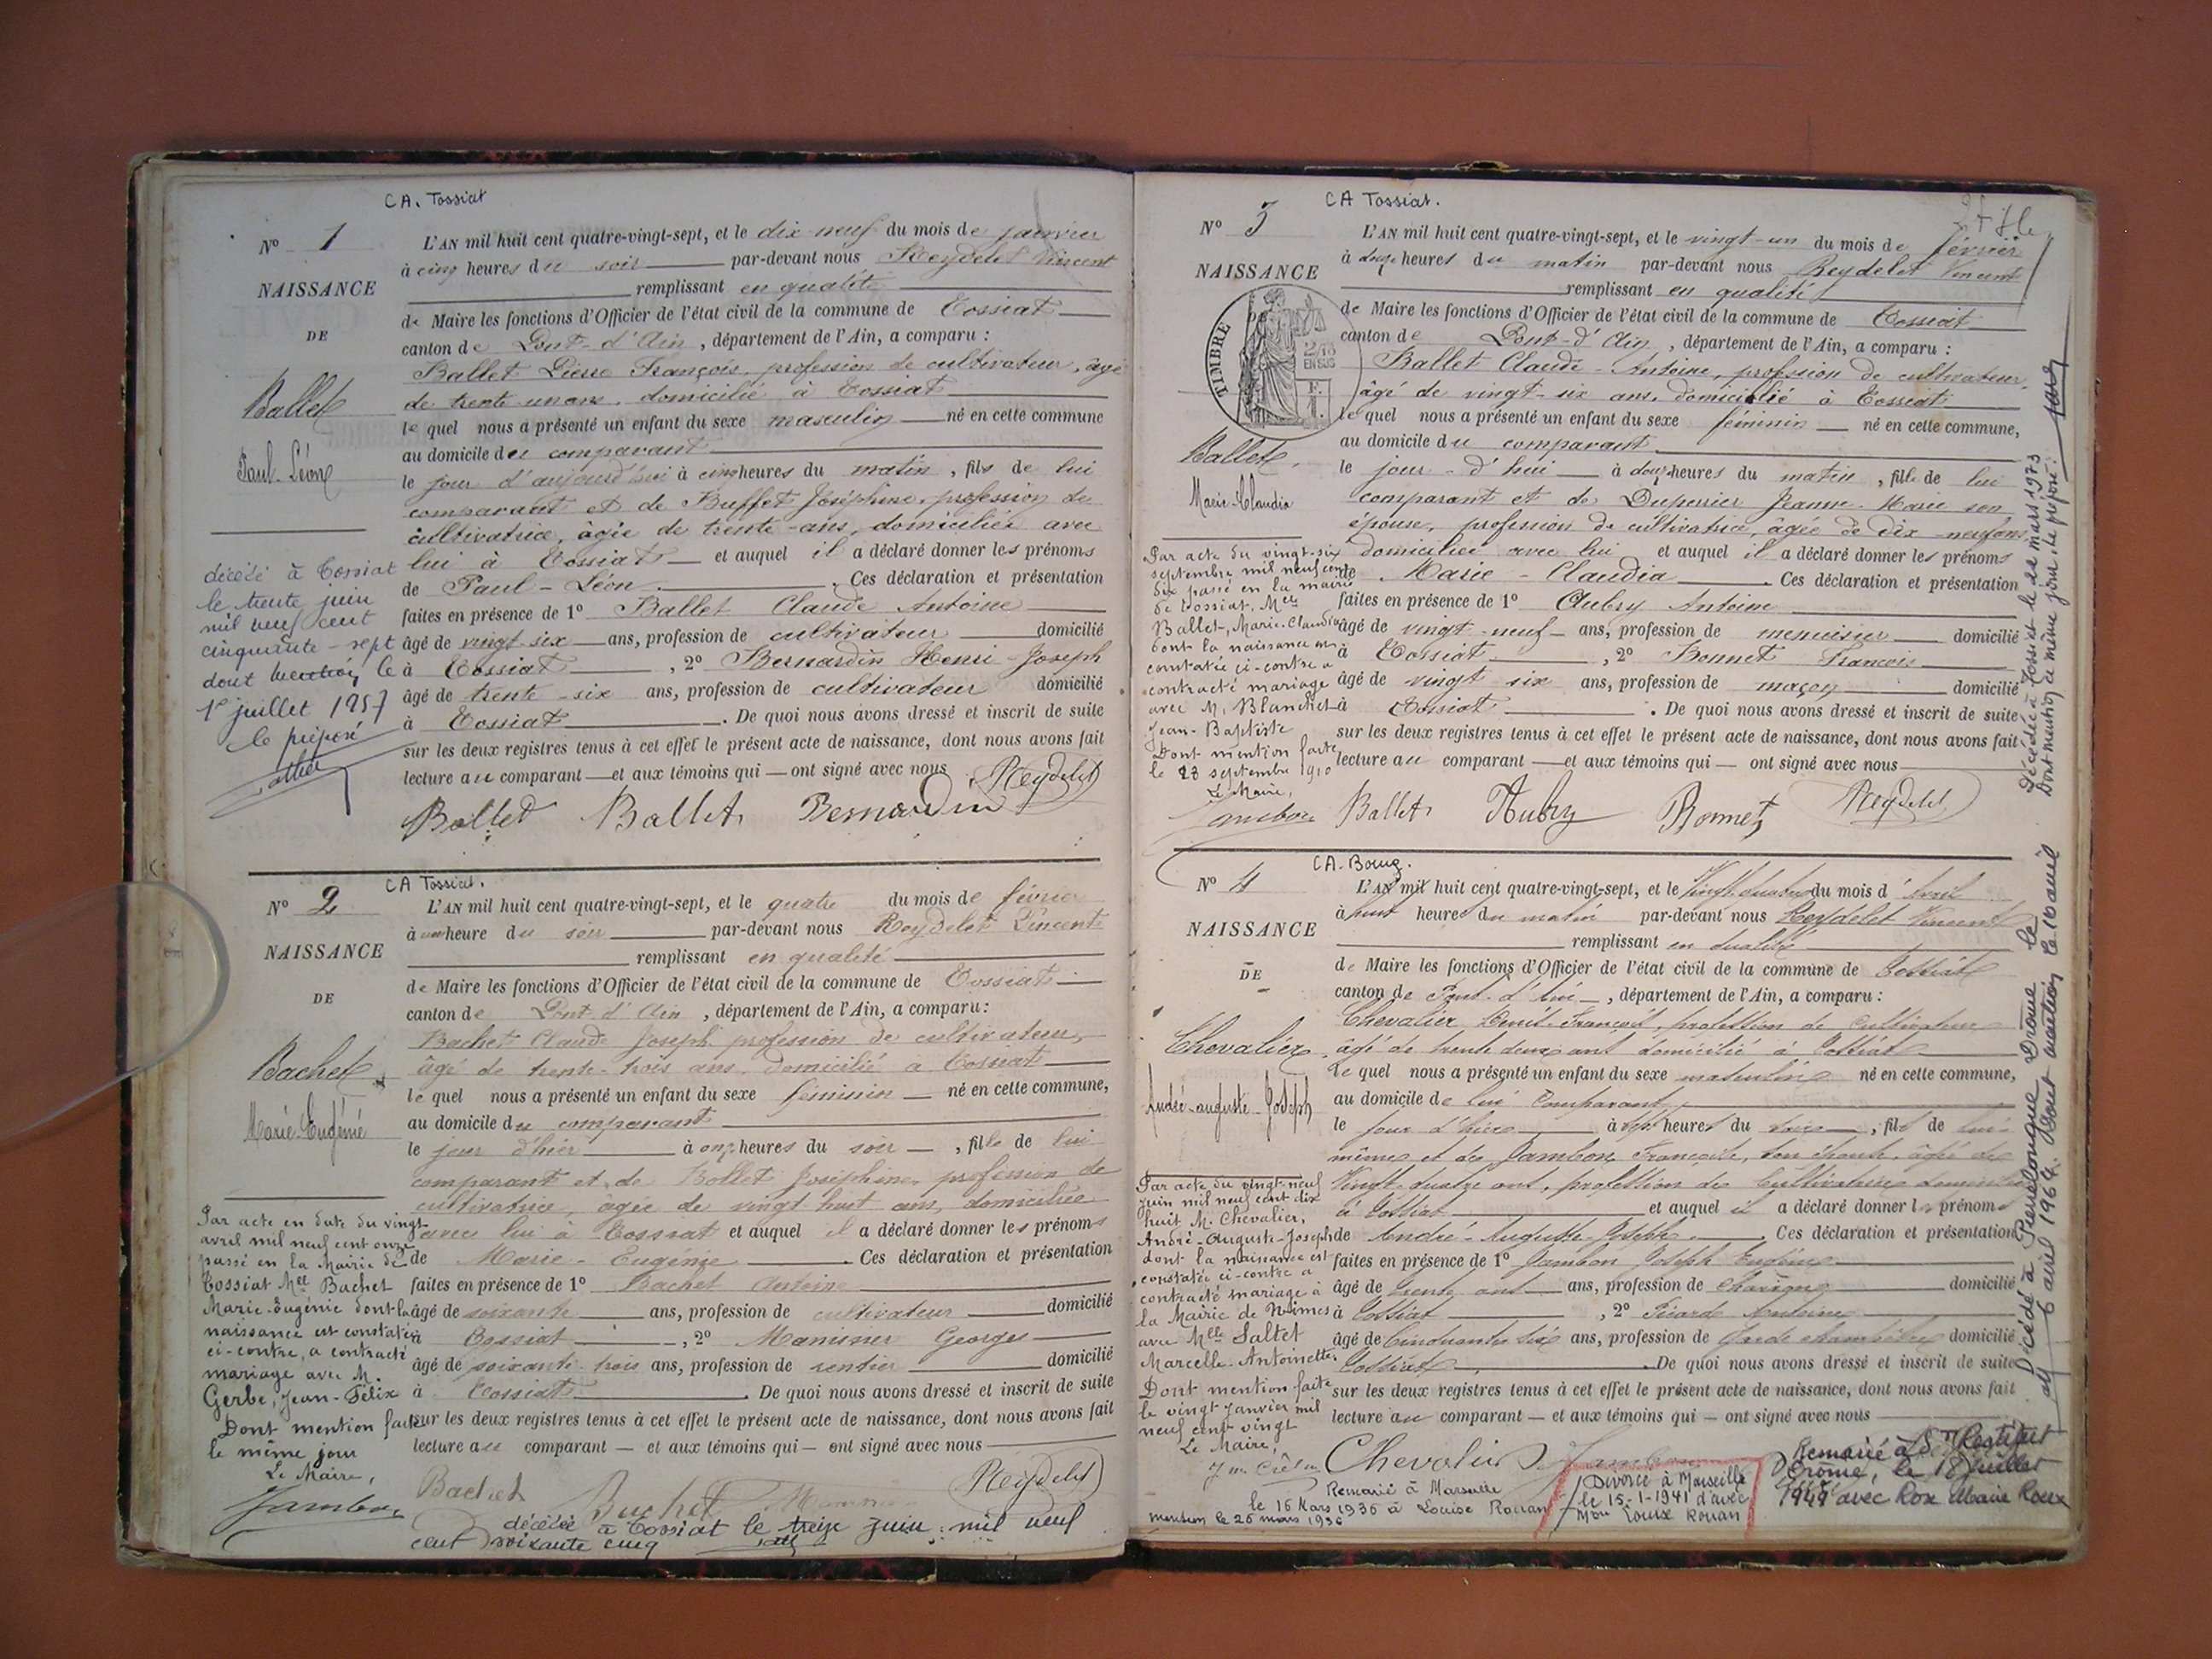 CA. Tossiat
N° 1
NAISSANCE
DE
Ballet
Paul-Léon
L'AN mil huit cent quatre-vingt-sept, et le dix-neuf du mois de janvier
à cinq heures du soir par-devant nous Reydelet Vincent
remplissant en qualité
de Maire les fonctions d'Officier de l'état civil de la commune de Tossiat
canton de Pont-d'Ain, département de l'Ain, a comparu :
Ballet Pierre François, profession de cultivateur, âgé
de trente-un ans, domicilié à Tossiat
le quel nous a présenté un enfant du sexe masculin né en cette commune
au domicile du comparant
le jour d'aujourd'hui à cinq heures du matin, fils de lui
comparant et de Buffet Joséphine, profession de
cultivatrice, âgée de trente-ans, domiciliée avec
lui à Tossiat et auquel il a déclaré donner les prénoms
de Paul-Léon. Ces déclaration et présentation
faites en présence de 1° Ballet Claude Antoine
âgé de vingt-six ans, profession de cultivateur domicilié
à Tossiat, 2° Bernardin Henri-Joseph
âgé de trente-six ans, profession de cultivateur domicilié
à Tossiat. De quoi nous avons dressé et inscrit de suite
sur les deux registres tenus à cet effet le présent acte de naissance, dont nous avons fait
lecture au comparant et aux témoins qui ont signé avec nous
Reydelet
Ballet Ballet Bernardin
décédé à Tossiat
le trente juin
mil neuf cent
cinquante-sept
dont mention le
1er juillet 1957
le préposé
CA Tossiat.
N° 2
NAISSANCE
DE
Bachet
Marie-Eugénie
L'AN mil huit cent quatre-vingt-sept, et le quatre du mois de février
à une heure du soir par-devant nous Reydelet Vincent
remplissant en qualité
de Maire les fonctions d'Officier de l'état civil de la commune de Tossiat
canton de Pont-d'Ain, département de l'Ain, a comparu :
Bachet Claude Joseph profession de cultivateur,
âgé de trente-trois ans, domicilié à Tossiat
le quel nous a présenté un enfant du sexe féminin né en cette commune,
au domicile du comparant
le jour d'hier à onze heures du soir, fille de lui
comparant et de Bollet Joséphine, profession de
cultivatrice, âgée de vingt-huit ans, domiciliée
avec lui à Tossiat et auquel il a déclaré donner les prénoms
de Marie-Eugénie. Ces déclaration et présentation
faites en présence de 1° Bachet Antoine
âgé de soixante ans, profession de cultivateur domicilié
à Tossiat, 2° Georges
âgé de soixante-trois ans, profession de rentier domicilié
à Tossiat. De quoi nous avons dressé et inscrit de suite
sur les deux registres tenus à cet effet le présent acte de naissance, dont nous avons fait
lecture au comparant et aux témoins qui ont signé avec nous
Bachet Buchet Reydelet
Par acte en date du vingt
avril mil neuf cent onze
passé en la Mairie de
Tossiat Melle Bachet
Marie-Eugénie dont la
naissance est constatée
ci-contre, a contracté
mariage avec M.
Gerbe, Jean-Félix
Dont mention faite
le même jour
Le Maire,
Jambon
décédée à Tossiat le treize juin mil neuf
cent soixante cinq
CA Tossiat.
N° 3
NAISSANCE
TIMBRE
Ballet
Marie-Claudia
L'AN mil huit cent quatre-vingt-sept, et le vingt-un du mois de février
à douze heures du matin par-devant nous Reydelet Vincent
remplissant en qualité
de Maire les fonctions d'Officier de l'état civil de la commune de Tossiat
canton de Pont-d'Ain, département de l'Ain, a comparu :
Ballet Claude-Antoine, profession de cultivateur,
âgé de vingt-six ans, domicilié à Tossiat
le quel nous a présenté un enfant du sexe féminin né en cette commune,
au domicile du comparant
le jour-d'hui à douze heures du matin, fille de lui
comparant et de Duperrier Jeanne-Marie son
épouse, profession de cultivatrice, âgée de dix-neuf ans,
domiciliée avec lui et auquel il a déclaré donner les prénoms
de Marie-Claudia. Ces déclaration et présentation
faites en présence de 1° Aubry Antoine
âgé de vingt-neuf ans, profession de menuisier domicilié
à Tossiat, 2° Bonnet François
âgé de vingt six ans, profession de maçon domicilié
à Tossiat. De quoi nous avons dressé et inscrit de suite
sur les deux registres tenus à cet effet le présent acte de naissance, dont nous avons fait
lecture au comparant et aux témoins qui ont signé avec nous
Ballet Aubry Bonnet Reydelet
Par acte du vingt-six
septembre mil neuf cent
dix passé en la mairie
de Tossiat, Melle
Ballet, Marie-Claudia
dont la naissance est
constatée ci-contre a
contracté mariage
avec M. Blanchet
Jean-Baptiste
Dont mention faite
le 28 septembre 1910
Le Maire,
Jambon
Décédée à Tossiat le 22 mars 1973
Dont mention ce même jour. Le préposé.
CA. Bourg.
N° 4
NAISSANCE
DE
Chevalier
André-auguste-Joseph
L'AN mil huit cent quatre-vingt-sept, et le Vingt-quatre du mois d'Avril
à heures du matin par-devant nous Reydelet Vincent
remplissant en qualité
de Maire les fonctions d'Officier de l'état civil de la commune de Tossiat
canton de Pont-d'Ain, département de l'Ain, a comparu :
Chevalier Denis-François, profession de Cultivateur
âgé de trente deux ans domicilié à Tossiat
le quel nous a présenté un enfant du sexe masculin né en cette commune,
au domicile de lui Comparant
le jour d'hier à sept heures du soir, fils de lui
même et de Jambon Françoise, son épouse, âgée de
Vingt-quatre ans, profession de Cultivatrice
à Tossiat et auquel il a déclaré donner les prénoms
de André-Auguste-Joseph. Ces déclaration et présentation
faites en présence de 1° Jambon Joseph Eugène
âgé de trente ans, profession de charron domicilié
à Tossiat, 2° Picard Antoine
âgé de Cinquante six ans, profession de Garde champêtre domicilié
Tossiat. De quoi nous avons dressé et inscrit de suite
sur les deux registres tenus à cet effet le présent acte de naissance, dont nous avons fait
lecture au comparant et aux témoins qui ont signé avec nous
Chevalier Jambon
Par acte du vingt-neuf
juin mil neuf cent dix
huit M. Chevalier,
André-Auguste-Joseph
dont la naissance est
constatée ci-contre a
contracté mariage à
la Mairie de Nîmes
avec Melle Saltet
Marcelle-Antoinette.
Dont mention faite
le vingt janvier mil
neuf cent vingt
Le Maire,
Remarié à Marseille
le 16 Mars 1936 à Louise Rouan
mention le 26 mars 1936
Divorcé à Marseille
le 15-1-1941 d'avec
Mme Louise Rouan
Remarié à St Restitut
Drôme, le 18 Juillet
1949 avec Rose Marie Roux
Décédé à Pierrelongue Drôme le
6 avril 1964. Dont mention le 10 avril